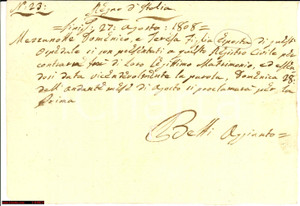 N.° 23: Regno d'Italia
27. Agosto = 1808 =
Mezzanotte Domenico, e Teresa Figlia Esposta di questo
Ospedale si son presentati a questo Registro Civile per
contrarre fra di loro legittimo Matrimonio, e
dosi data vicendevolmente la parola, Domenica 28.
dell'andante mese di Agosto si proclamerà per la
Prima
Betti Aggiunto =